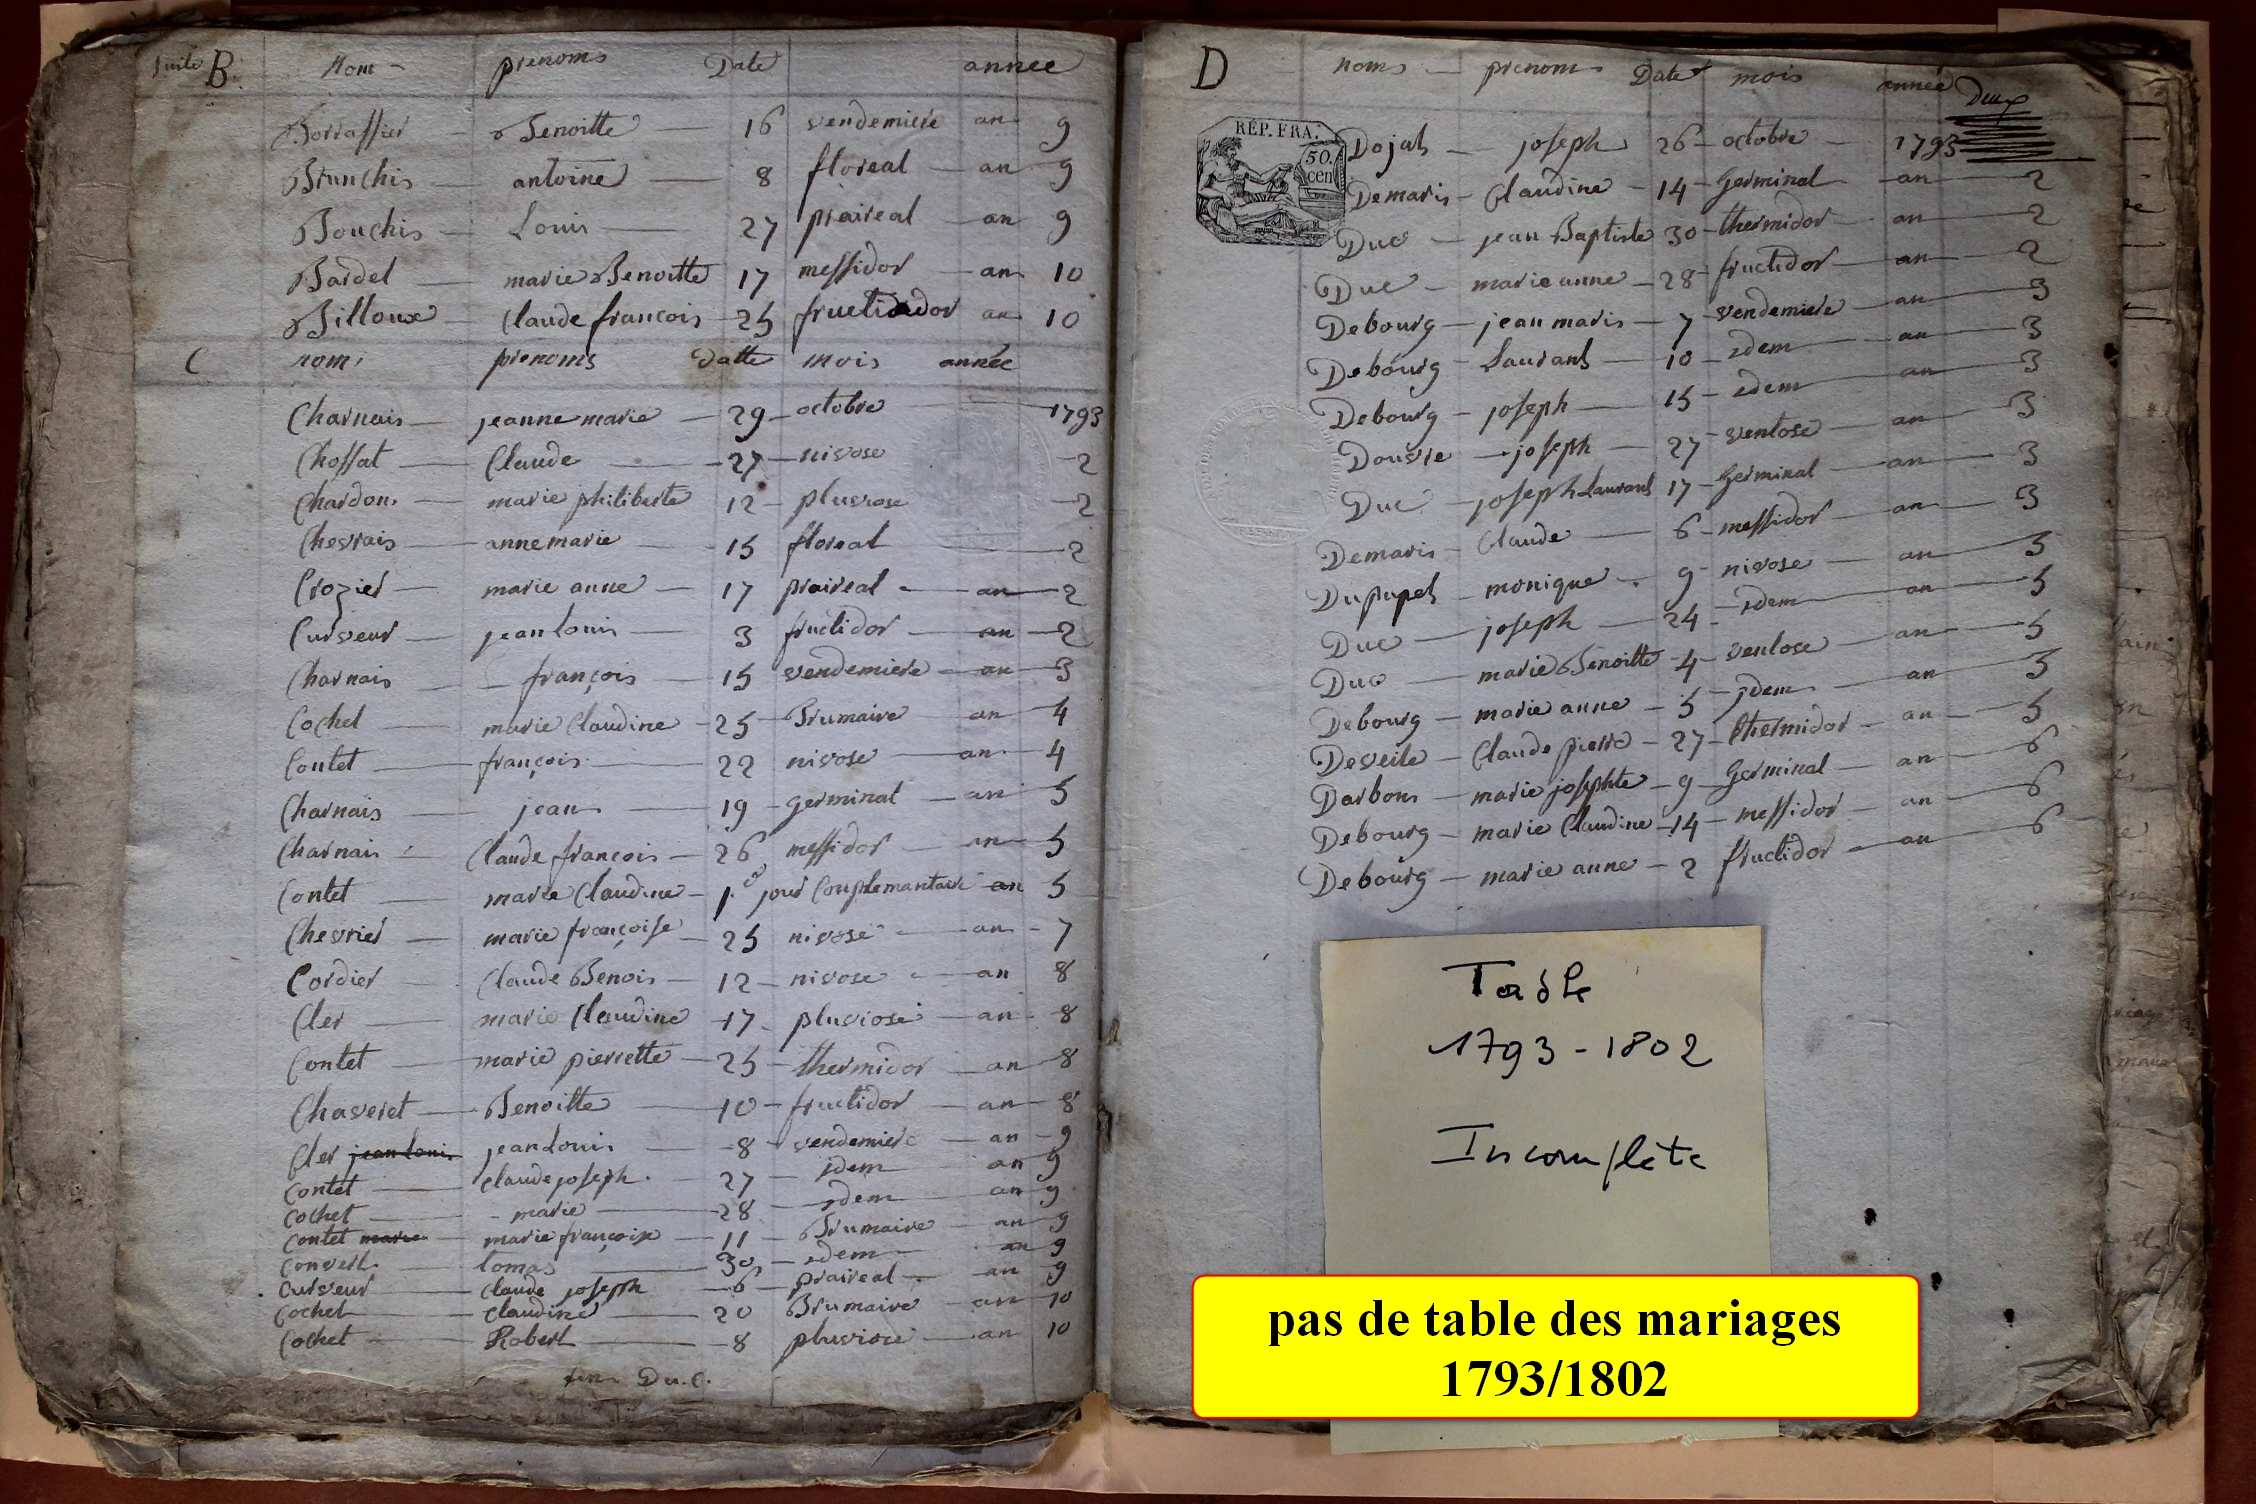 Suite B. Nom prenoms Date année
Borraffier Benoitte 16 vendemiere an 9
Brunchis antoine 8 floreal an 9
Bouchis Louis 27 praireal an 9
Bardel marie Benoitte 17 messidor an 10
Billoux Claude francois 25 fructidor an 10
C nom prenoms Datte mois année
Charnais jeanne marie 29 octobre 1793
Chossat Claude 27 nivose 2
Chardon marie philiberte 12 pluvose 2
Chevrais anne marie 15 floreal 2
Crozier marie anne 17 praireal an 2
Curveur jean louis 3 fructidor an 2
Charnais françois 15 vendemiere an 3
Cochet marie Claudine 25 Brumaire an 4
Contet françois 22 nivose an 4
Charnais jean 19 germinal an 5
Charnais Claude françois 26 messidor an 5
Contet marie Claudine 1.e jour Complemantaire an 5
Chevrier marie françoise 25 nivose an 7
Cordier Claude Benois 12 nivose an 8
Cler marie Claudine 17 pluviose an 8
Contet marie pierrette 25 thermidor an 8
Chaveret Benoitte 10 fructidor an 8
Cler jean louis jean louis 8 vendemiere an 9
Contet claude joseph 27 idem an 9
Cochet marie 28 idem an 9
Contet marie marie françoise 11 Brumaire an 9
Convert tomas 30 idem an 9
Curveur Claude joseph 6 praireal an 9
Cochet Claudine 20 Brumaire an 10
Cochet Robert 8 pluviose an 10
fin Du C.
D noms prenoms Date mois année
Deux
RÉP. FRA.
50.
cen
Dojat joseph 26 octobre 1793
Demaris Claudine 14 Germinal an 2
Duc jean Baptiste 30 thermidor an 2
Duc marie anne 28 fructidor an 2
Debourg jean maris 7 vendemiere an 3
Debourg Laurant 10 idem an 3
Debourg joseph 15 idem an 3
Douvre joseph 27 ventose an 3
Duc joseph Laurant 17 Germinal an 3
Demaris Claude 6 messidor an 3
Dupupet monique 9 nivose an 5
Duc joseph 24 idem an 5
Duc marie Benoitte 4 ventose an 5
Debourg marie anne 5 jdem an 5
Deveile Claude pierre 27 thermidor an 5
Darbon marie josephte 9 Germinal an 6
Debourg marie Claudine 14 messidor an 6
Debourg marie anne 2 fructidor an 6
Table
1793 - 1802
Incomplète
pas de table des mariages
1793/1802